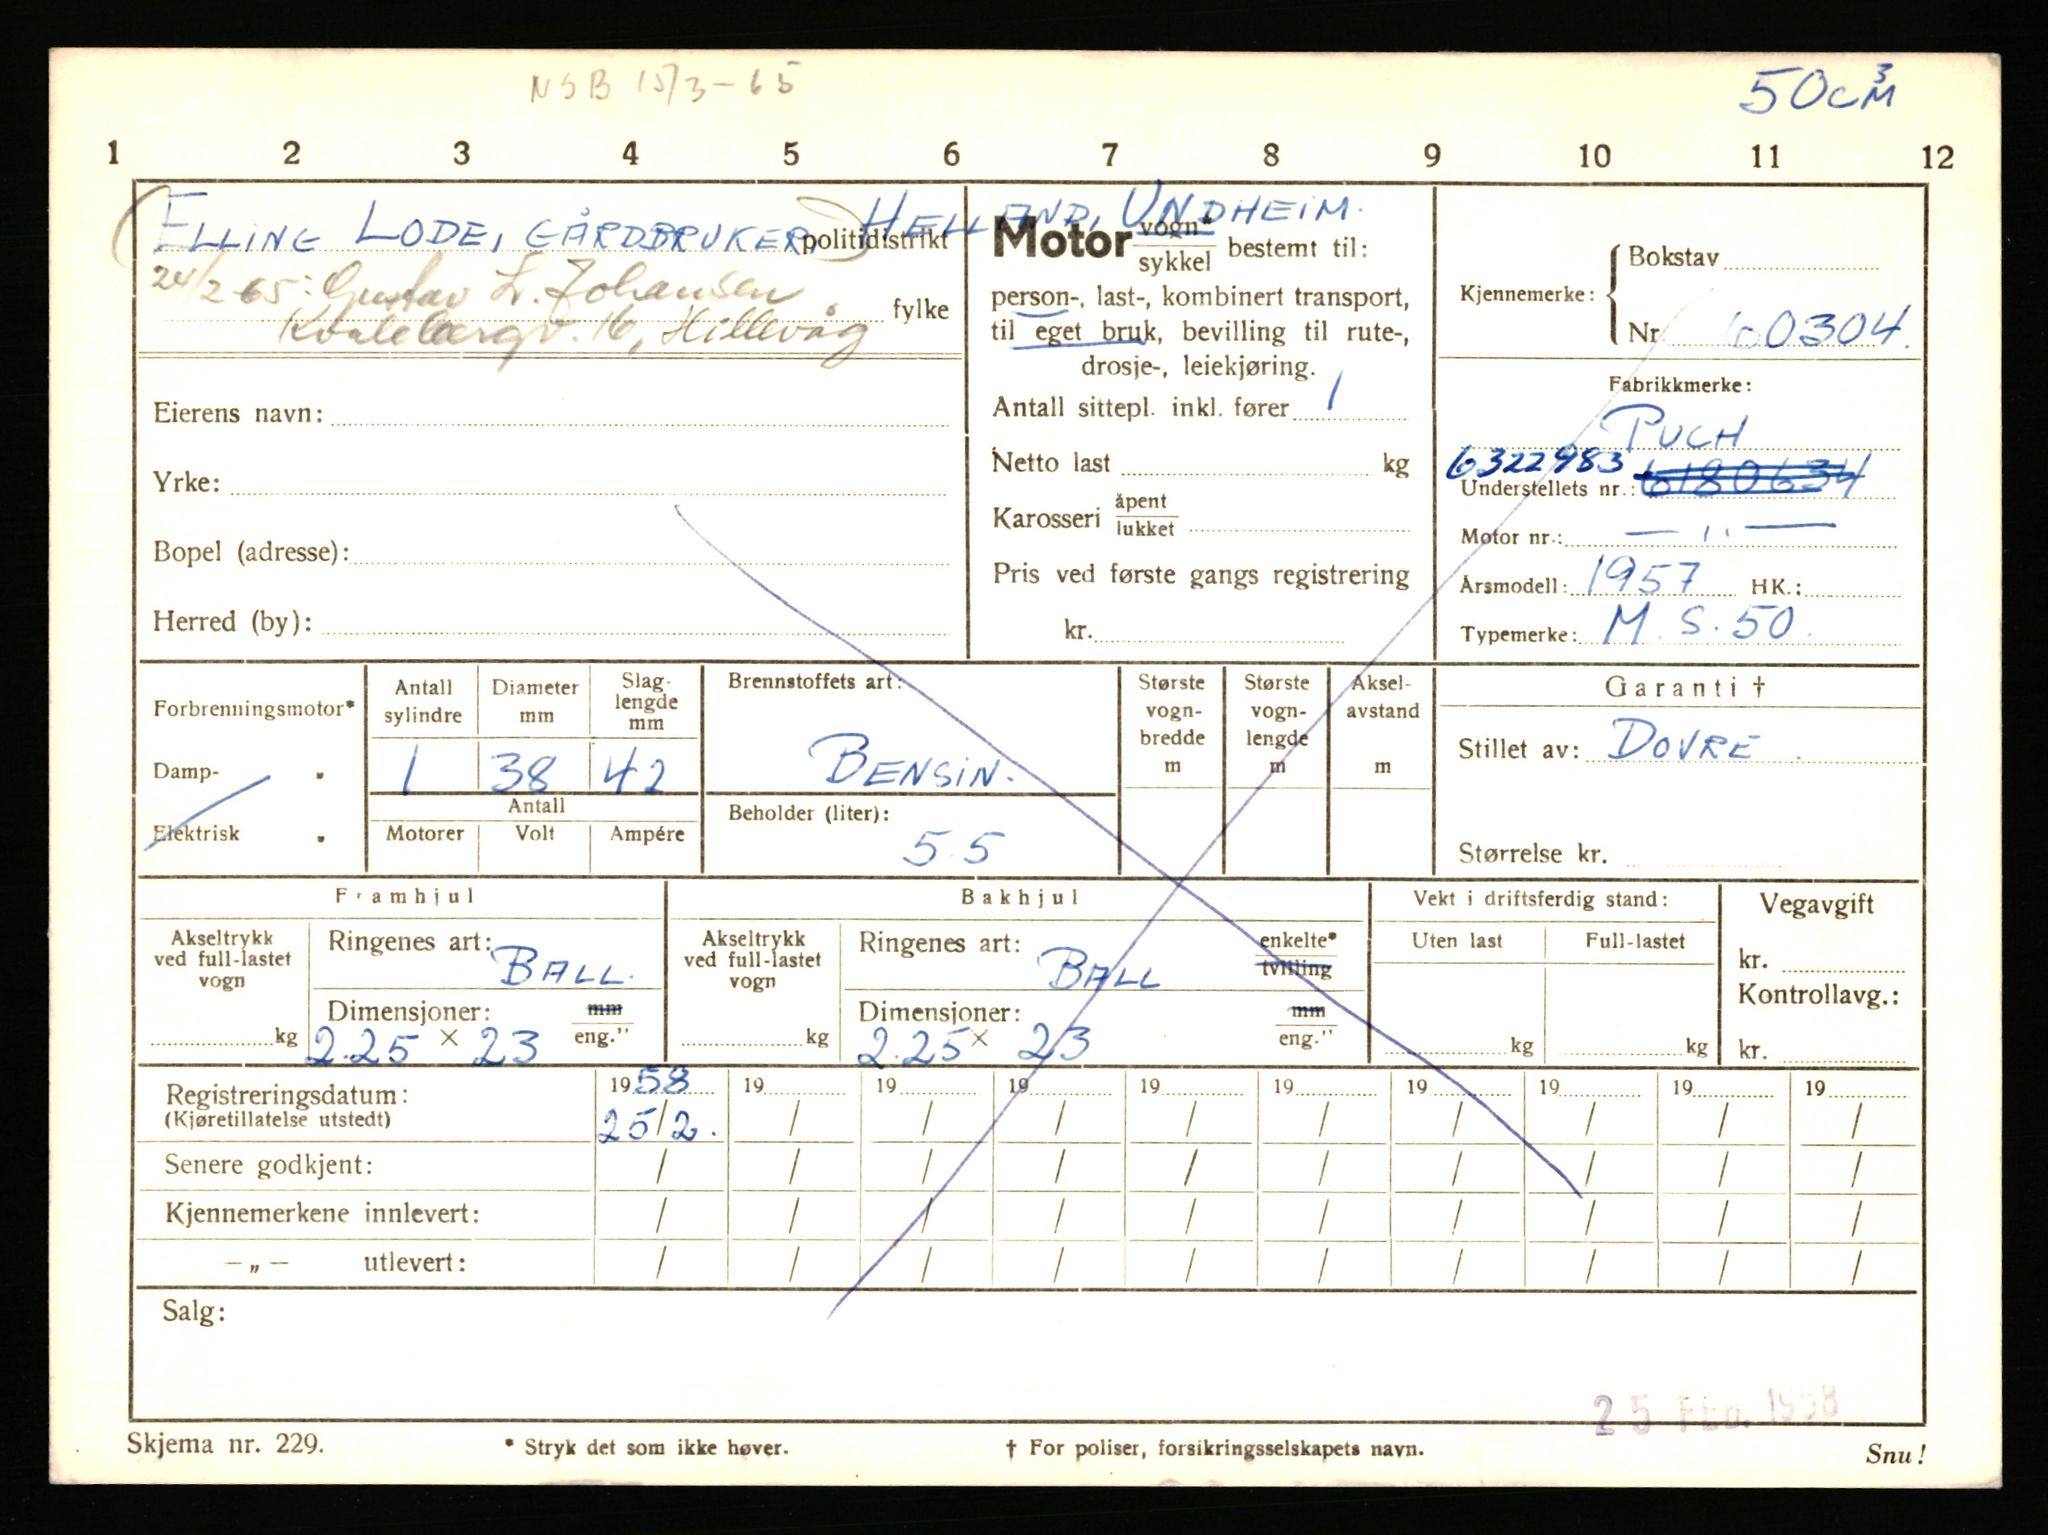 NSB 15/3-65
50 cm³
1 2 3 4 5 6 7 8 9 10 11 12
ELLING LODE, GÅRDBRUKER, HELLAND, UNDHEIM.
politidistrikt
24/2-65: Gustav L. Johansen
fylke
16, Hillevåg
Eierens navn:
Yrke:
Bopel (adresse):
Herred (by):
Motor vogn* sykkel bestemt til:
person-, last-, kombinert transport,
til eget bruk, bevilling til rute-,
drosje-, leiekjøring.
Antall sittepl. inkl. fører 1
Netto last kg
Karosseri åpent lukket
Pris ved første gangs registrering
kr.
Kjennemerke: Bokstav
Nr 60304.
Fabrikkmerke:
PUCH
6322983
Understellets nr.: 6180634
Motor nr.: — ,, —
Årsmodell: 1957 HK.:
Typemerke: M. S. 50.
Forbrenningsmotor*
Damp- „
Elektrisk „
Antall sylindre
Diameter mm
Slag-lengde mm
1 38 42
Antall
Motorer Volt Ampére
Brennstoffets art:
BENSIN.
Beholder (liter):
5.5
Største vogn-bredde m
Største vogn-lengde m
Aksel-avstand m
Garanti †
Stillet av: DOVRE.
Størrelse kr.
Framhjul
Akseltrykk ved full-lastet vogn
kg
Ringenes art: BALL.
Dimensjoner: mm eng."
2.25 × 23
Bakhjul
Akseltrykk ved full-lastet vogn
kg
Ringenes art: BALL
enkelte* tvilling
Dimensjoner: mm eng."
2.25 × 23
Vekt i driftsferdig stand:
Uten last Full-lastet
kg kg
Vegavgift
kr.
Kontrollavg.:
kr.
Registreringsdatum: 1958 19 19 19 19 19 19 19 19 19
(Kjøretillatelse utstedt) 25/2. / / / / / / / / /
Senere godkjent: / / / / / / / / / /
Kjennemerkene innlevert: / / / / / / / / / /
— „ — utlevert: / / / / / / / / / /
Salg:
25 FEB. 1958
Skjema nr. 229.
* Stryk det som ikke høver.
† For poliser, forsikringsselskapets navn.
Snu!